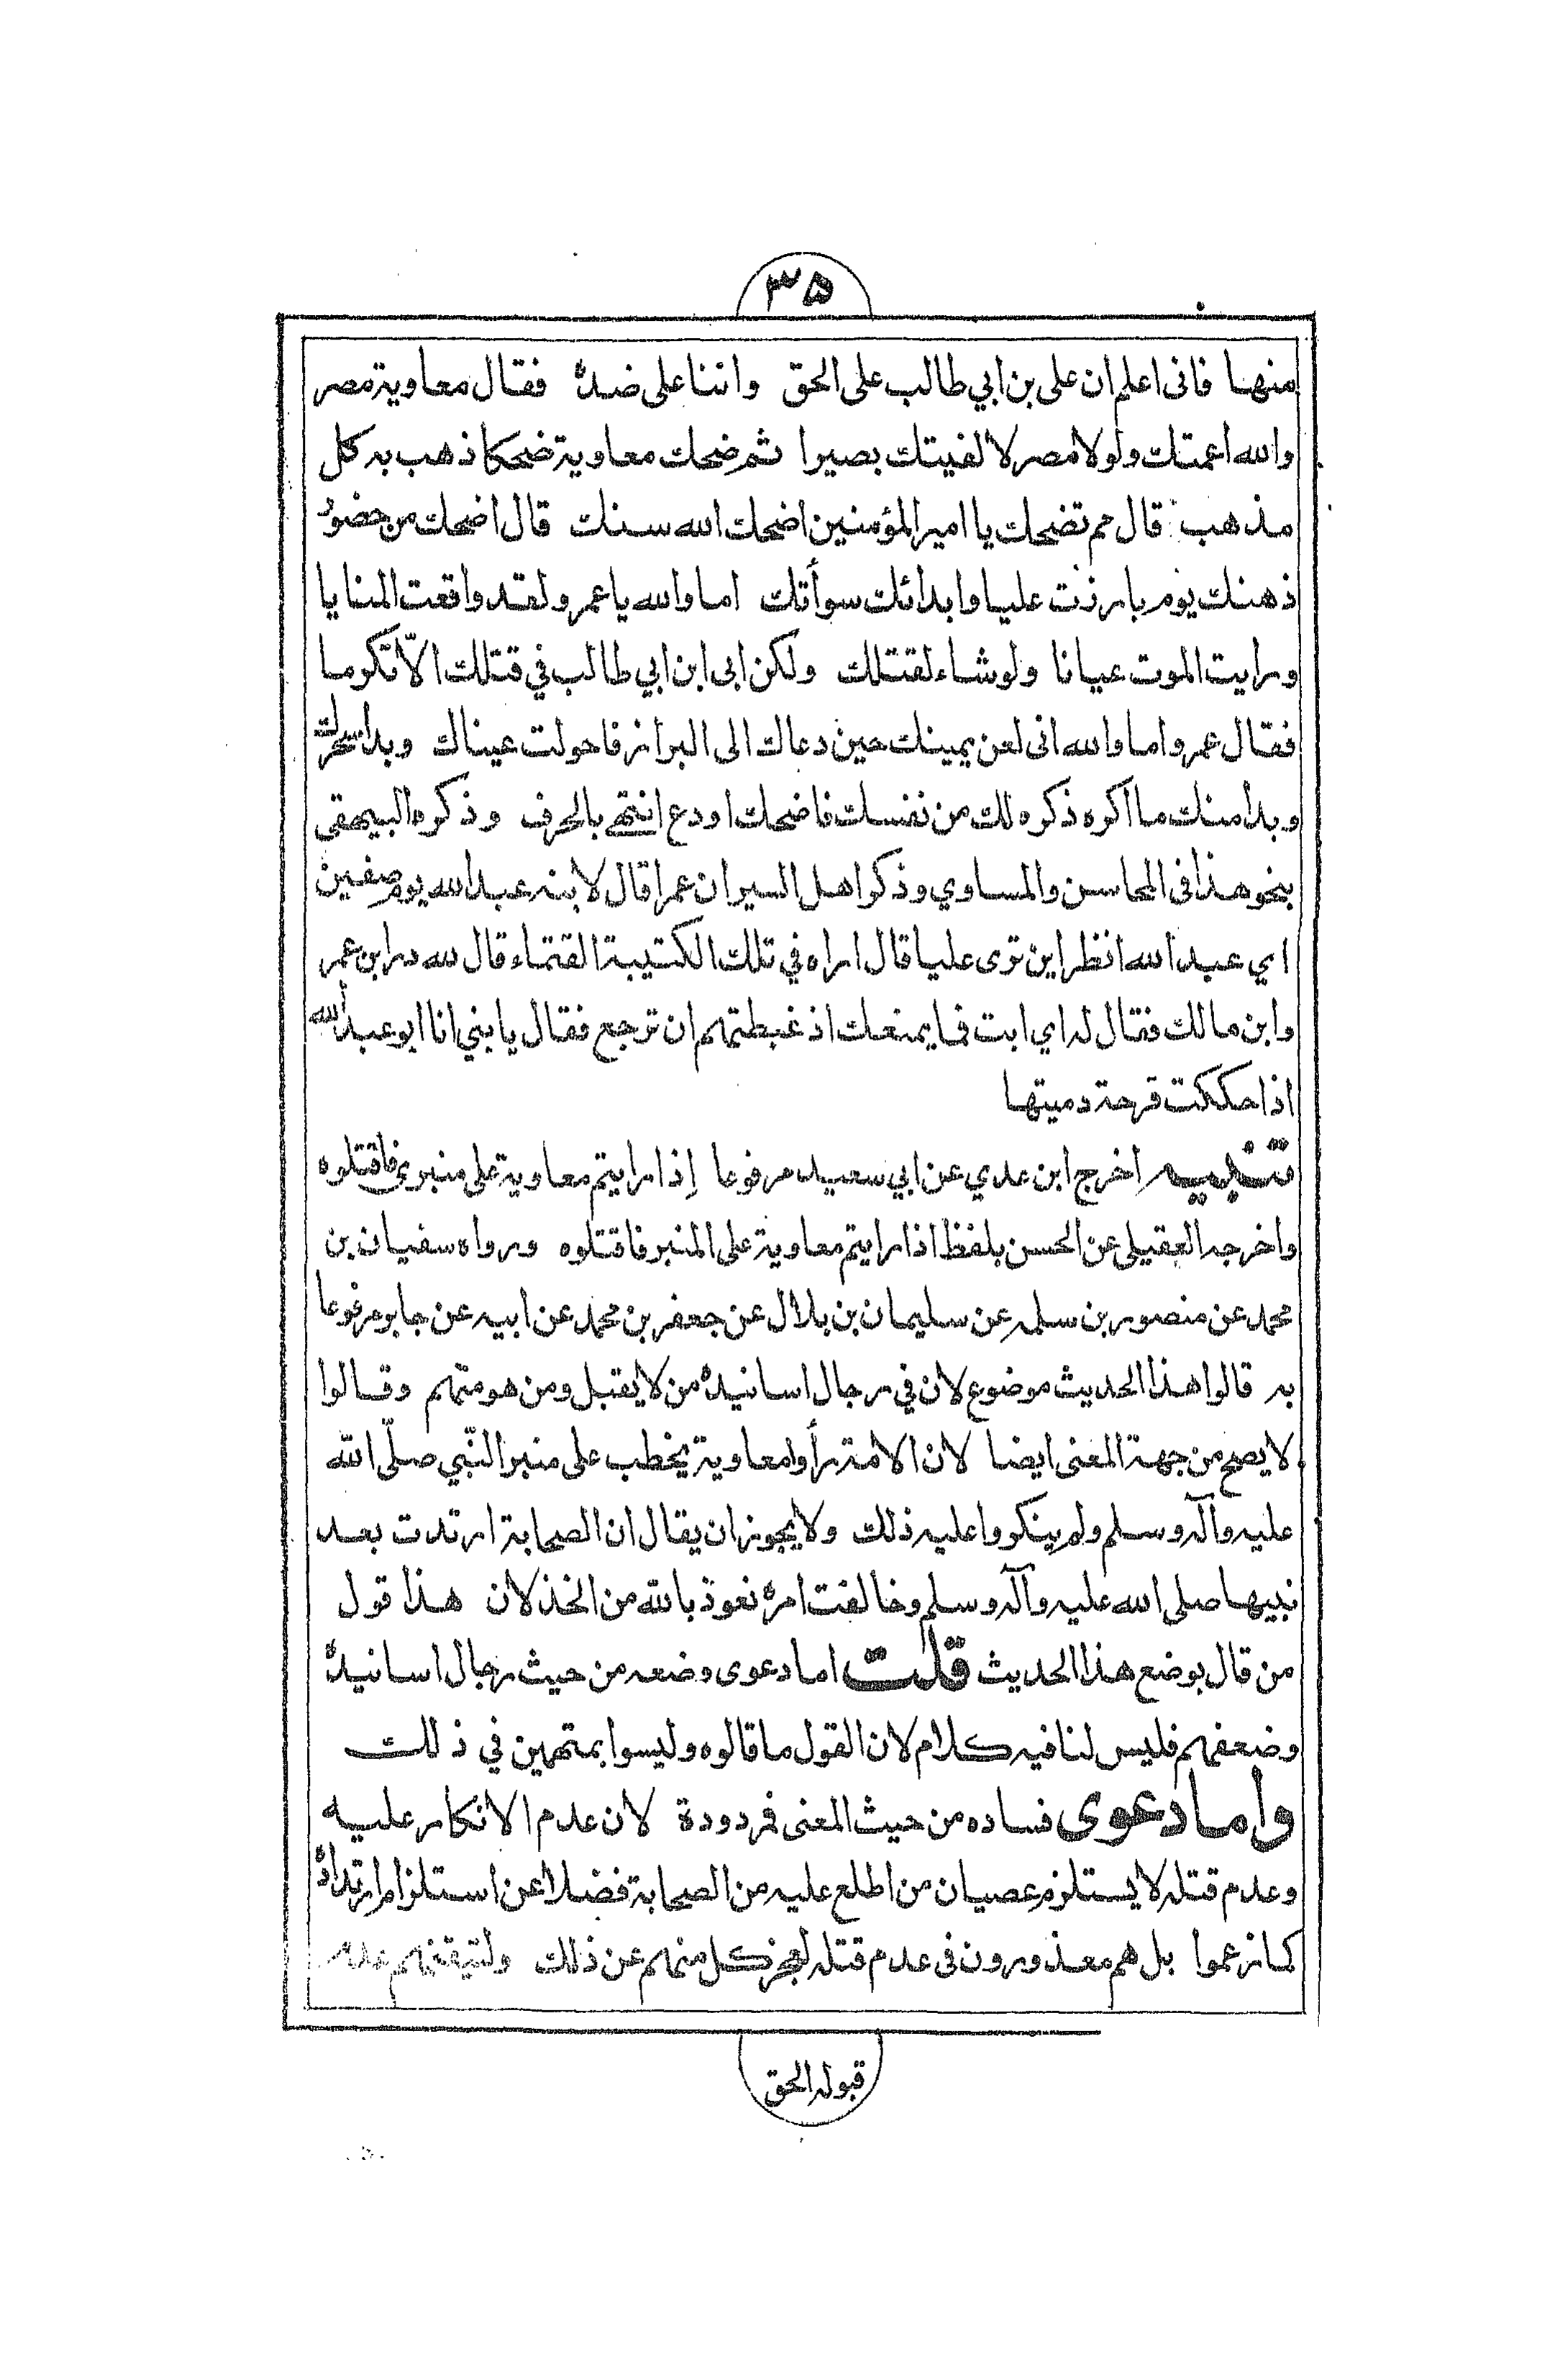 ٣٥
منها فانى اعلم ان على بن ابي طالب على الحق واننا على ضده فقال معاوية مصر
والله اعمتك ولولا مصر لالفيتك بصيرا ثم ضحك معاوية ضحكا ذهب به كل
مذهب قال مم تضحك يا امير المؤمنين اضحك الله سنك قال اضحك من حضور
ذهنك يوم بارزت عليا وابدائك سوأتك اما والله يا عمرو لقد واقعت المنايا
ورايت الموت عيانا ولو شاء لقتلك ولكن ابى ابن ابي طالب في قتلك الّا تكرما
فقال عمرو اما والله انى لعن يمينك حين دعاك الى البراز فاحولت عيناك وبدا سحرك
وبدا منك ما اكره ذكره لك من نفسك فاضحك او دع انتهى بالحرف وذكره البيهقي
بنحو هذا فى المحاسن والمساوي وذكر اهل السير ان عمرا قال لابنه عبد الله يوم صفين
اي عبد الله انظر اين ترى عليا قال اراه في تلك الكتيبة القتماء قال لله در ابن عمر
وابن مالك فقال له اي ابت فما يمنعك اذ غبطتهم ان ترجع فقال يا بني انا ابو عبد الله
اذا حككت قرحة دميتها
تنبيه اخرج ابن عدي عن ابي سعيد مرفوعا إذا رايتم معاوية على منبري فاقتلوه
واخرجه العقيلي عن الحسن بلفظ اذا رايتم معاوية على المنبر فاقتلوه ورواه سفيان بن
محمد عن منصور بن سلمه عن سليمان بن بلال عن جعفر بن محمد عن ابيه عن جابر مرفوعا
به قالوا هذا الحديث موضوع لان في رجال اسانيده من لا يقبل ومن هو متهم وقالوا
لا يصح من جهة المعنى ايضا لان الامة رأوا معاوية يخطب على منبر النّبي صلّى الله
عليه وآله وسلم ولم ينكروا عليه ذلك ولا يجوز ان يقال ان الصحابة ارتدت بعد
نبيها صلى الله عليه وآله وسلم وخالفت امره نعوذ بالله من الخذلان هذا قول
من قال بوضع هذا الحديث قلت اما دعوى وضعه من حيث رجال اسانيده
وضعفهم فليس لنا فيه كلام لان القول ما قالوه وليسوا بمتهمين في ذلك
واما دعوى فساده من حيث المعنى فمردودة لان عدم الانكار عليه
وعدم قتله لا يستلزم عصيان من اطلع عليه من الصحابة فضلا عن استلزام ارتداده
كما زعموا بل هم معذورون فى عدم قتله لعجز كل منهم عن ذلك ولتيقنهم عدم
قبوله الحق